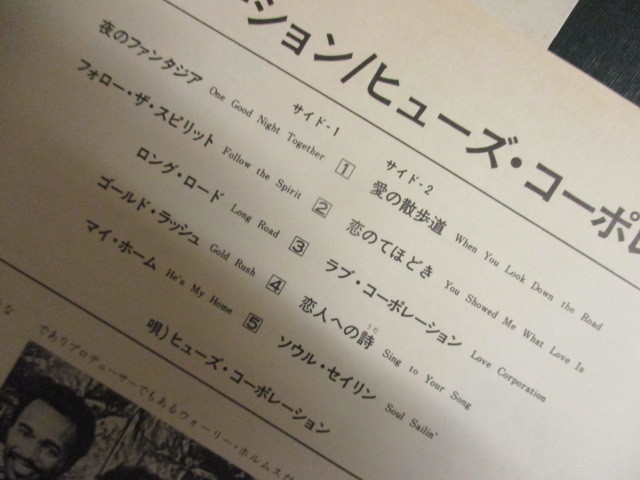 ション/ヒューズ・コーポレ
サイド-1
夜のファンタジア One Good Night Together 1
フォロー・ザ・スピリット Follow the Spirit 2
ロング・ロード Long Road 3
ゴールド・ラッシュ Gold Rush 4
マイ・ホーム He's My Home 5
サイド-2
愛の散歩道 When You Look Down the Road
恋のてほどき You Showed Me What Love Is
ラブ・コーポレーション Love Corporation
恋人への詩 うた Sing to Your Song
ソウル・セイリン Soul Sailin'
唄)ヒューズ・コーポレーション
でありプロデューサーでもあるウォーリー・ホルムズが